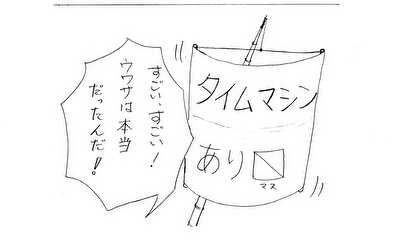 すごい、すごい！
ウワサは本当
だったんだ！
タイムマシン
あり〼
マス